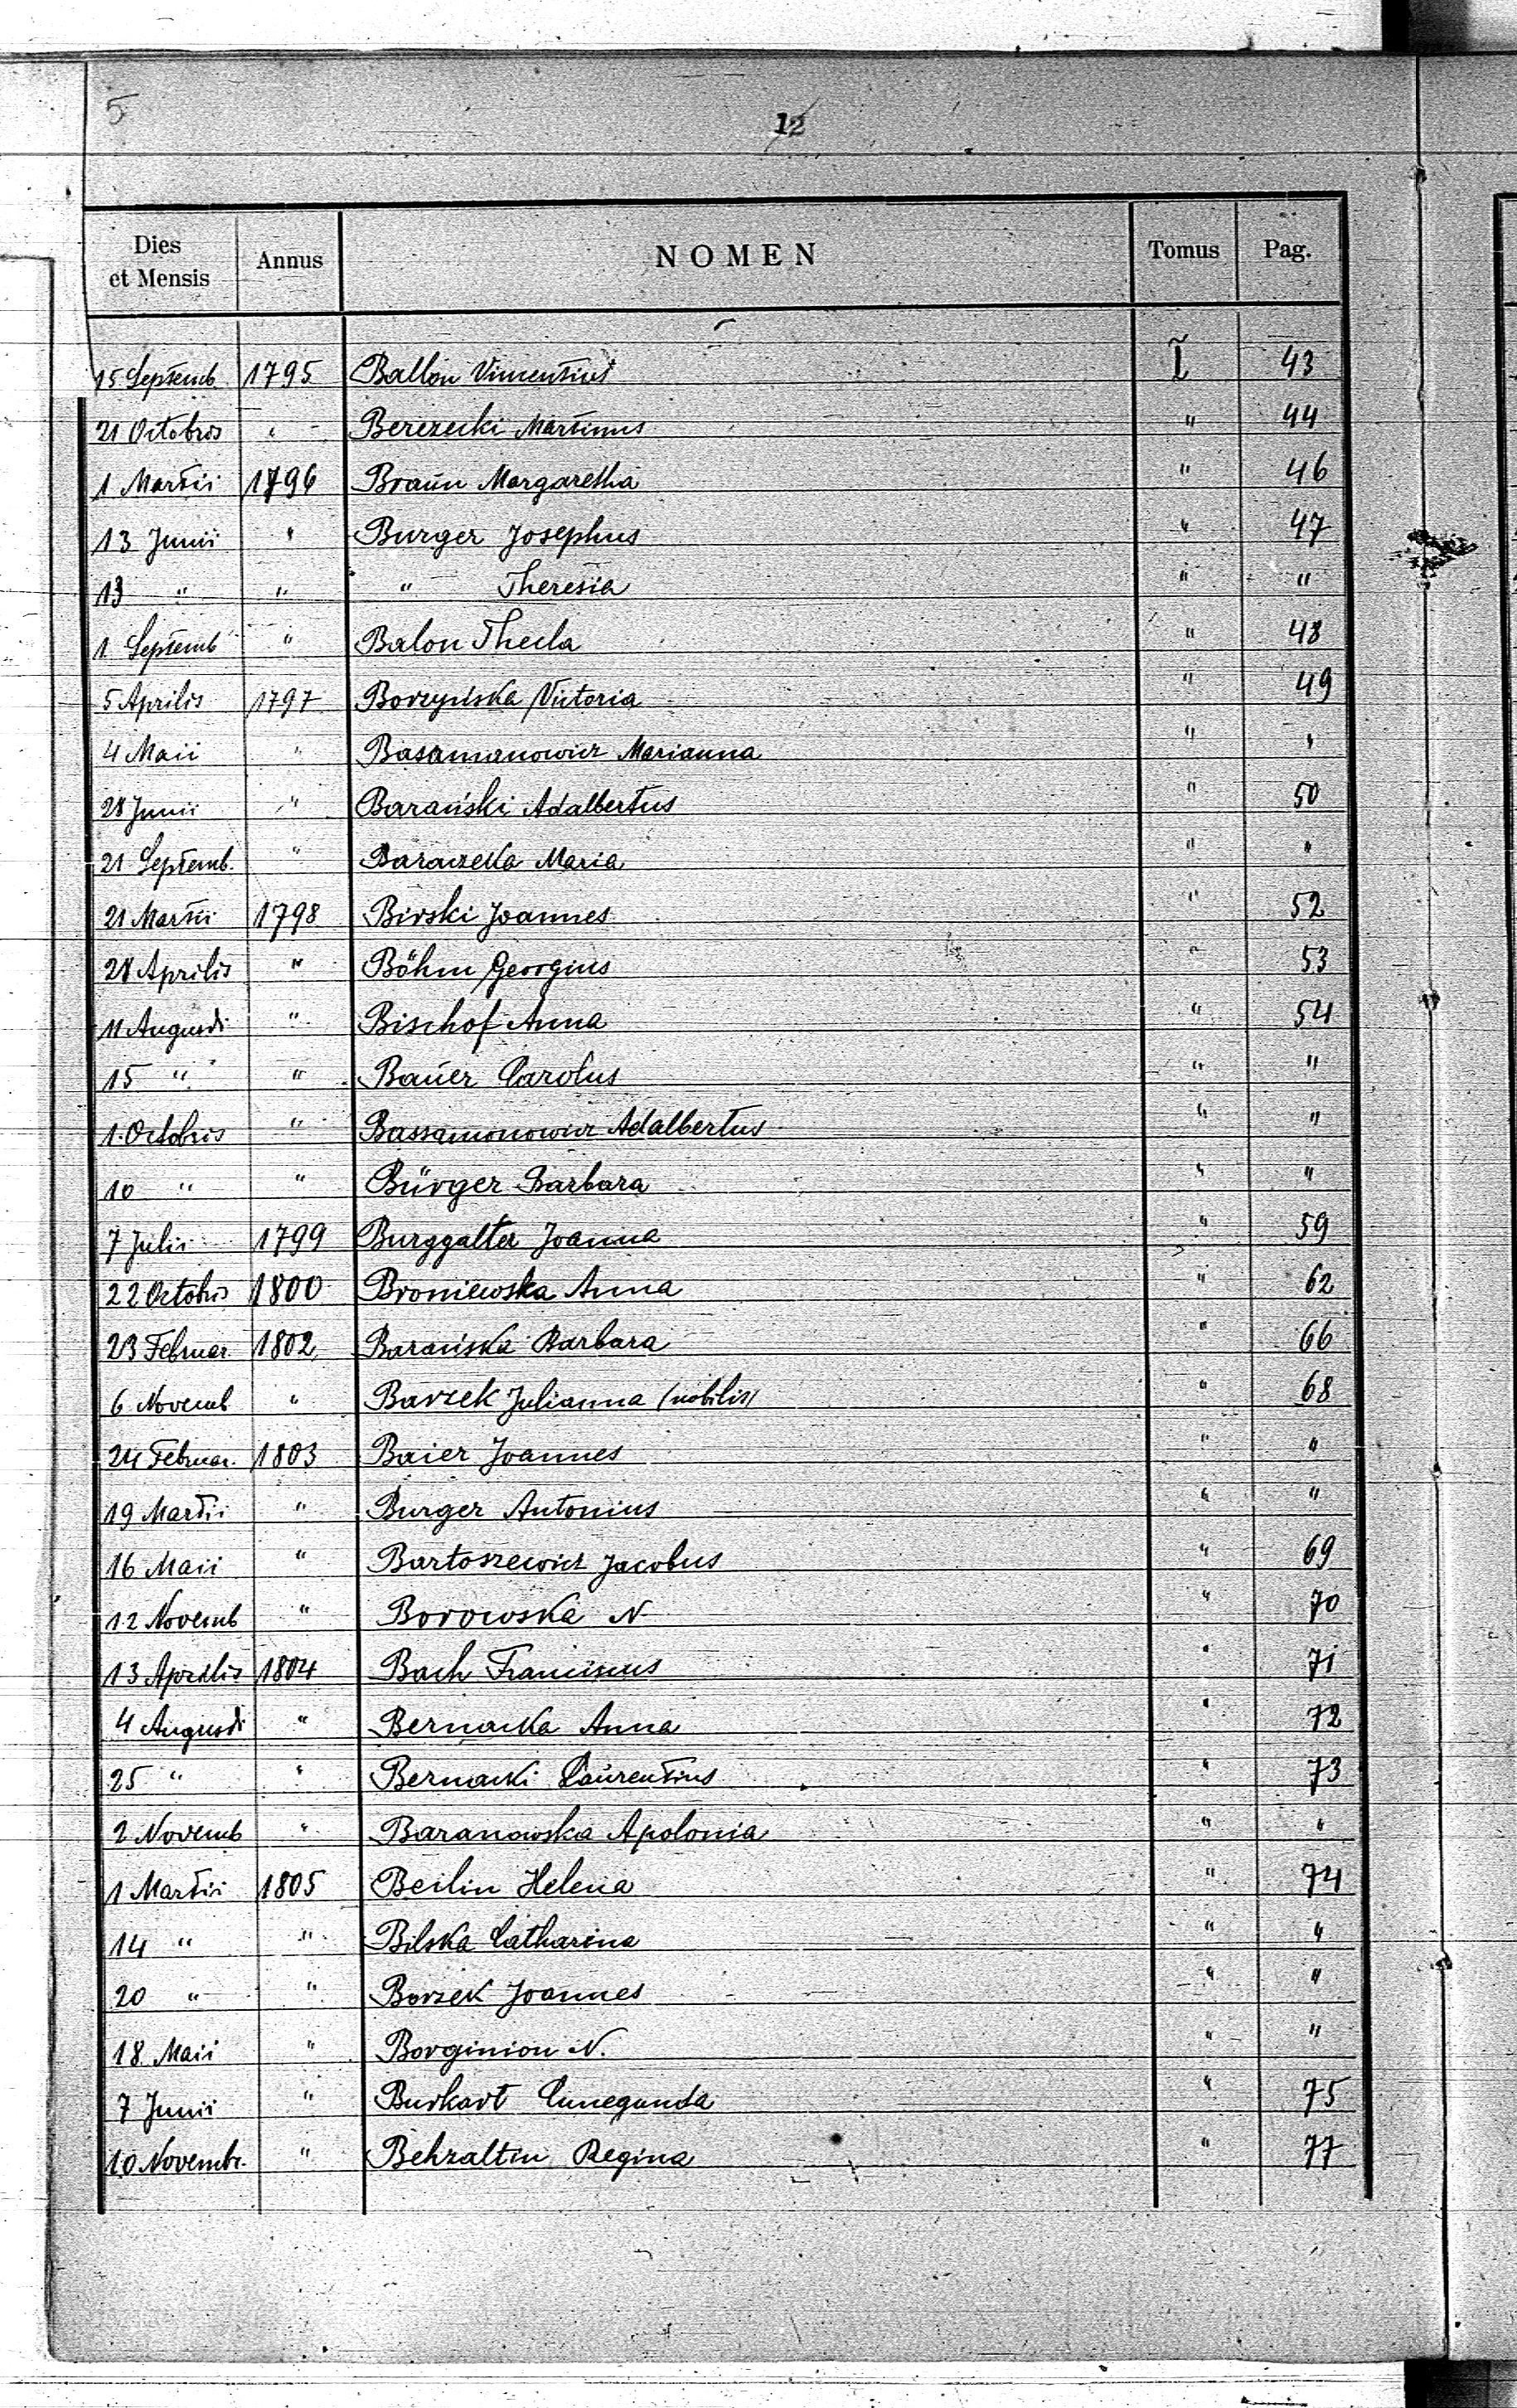 5
12
Dies et Mensis Annus NOMEN Tomus Pag.
15 Septemb 1795 Ballon Vincentius I 43
21 Octobris " Berezecki Martinus " 44
1 Martii 1796 Braun Margaretha " 46
13 Junii " Burger Josephus " 47
13 " " " Theresia " "
1 Septemb " Balon Thecla " 48
5 Aprilis 1797 Borzyńska Victoria " 49
4 Maii " Basamanowicz Marianna " "
28 Junii " Barański Adalbertus " 50
21 Septemb. " Baraczecka Maria " "
21 Martii 1798 Birski Joannes " 52
28 Aprilis " Böhm Georgius " 53
11 Augusti " Bischof Anna " 54
15 " " Bauer Carolus " "
1. Octobris " Bassamonowicz Adalbertus " "
10 " " Bürger Barbara " "
7 Julii 1799 Burggalter Joanna " 59
22 Octobris 1800 Broniewska Anna " 62
23 Februar. 1802 Barańska Barbara " 66
6 Novemb " Barzek Julianna (nobilis) " 68
24 Februar. 1803 Baier Joannes " "
19 Martii " Burger Antonius " "
16 Maii " Bartoszewicz Jacobus " 69
12 Novemb " Borowska N " 70
13 Aprilis 1804 Bach Franciscus " 71
4 Augusti " Bernacka Anna " 72
25 " " Bernacki Laurentius " 73
2 Novemb " Baranowska Apolonia " "
1 Martii 1805 Beilin Helena " 74
14 " " Bilska Catharina " "
20 " " Borzek Joannes " "
18 Maii " Borginion N. " "
7 Junii " Burkart Cunegunda " 75
10 Novembr. " Behzaltin Regina " 77